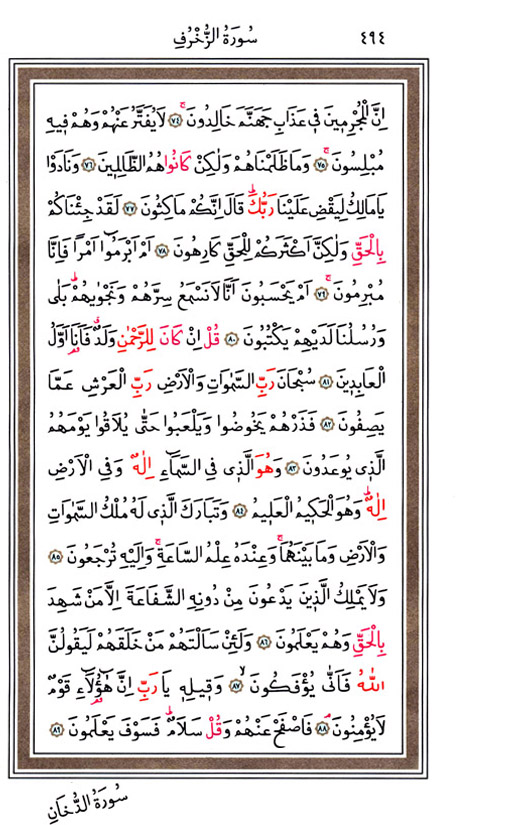 ٤٩٤
سُورَةُ الزُّخْرُفِ
اِنَّ الْمُجْرِمِينَ فِى عَذَابِ جَهَنَّمَ خَالِدُونَۚ ﴿٧٤﴾ لَا يُفَتَّرُ عَنْهُمْ وَهُمْ فِيهِ
مُبْلِسُونَۚ ﴿٧٥﴾ وَمَا ظَلَمْنَاهُمْ وَلٰكِنْ كَانُوا هُمُ الظَّالِمِينَ ﴿٧٦﴾ وَنَادَوْا
يَا مَالِكُ لِيَقْضِ عَلَيْنَا رَبُّكَۜ قَالَ اِنَّكُمْ مَاكِثُونَ ﴿٧٧﴾ لَقَدْ جِئْنَاكُمْ
بِالْحَقِّ وَلٰكِنَّ اَكْثَرَكُمْ لِلْحَقِّ كَارِهُونَ ﴿٧٨﴾ اَمْ اَبْرَمُٓوا اَمْرًا فَاِنَّا
مُبْرِمُونَۚ ﴿٧٩﴾ اَمْ يَحْسَبُونَ اَنَّا لَا نَسْمَعُ سِرَّهُمْ وَنَجْوٰيهُمْۜ بَلٰى
وَرُسُلُنَا لَدَيْهِمْ يَكْتُبُونَ ﴿٨٠﴾ قُلْ اِنْ كَانَ لِلرَّحْمٰنِ وَلَدٌۗ فَاَنَا۬ اَوَّلُ
الْعَابِدِينَ ﴿٨١﴾ سُبْحَانَ رَبِّ السَّمٰوَاتِ وَالْاَرْضِ رَبِّ الْعَرْشِ عَمَّا
يَصِفُونَ ﴿٨٢﴾ فَذَرْهُمْ يَخُوضُوا وَيَلْعَبُوا حَتّٰى يُلَاقُوا يَوْمَهُمُ
الَّذِى يُوعَدُونَ ﴿٨٣﴾ وَهُوَ الَّذِى فِى السَّمَٓاءِ اِلٰهٌ وَفِى الْاَرْضِ
اِلٰهٌۜ وَهُوَ الْحَكِيمُ الْعَلِيمُ ﴿٨٤﴾ وَتَبَارَكَ الَّذِى لَهُ مُلْكُ السَّمٰوَاتِ
وَالْاَرْضِ وَمَا بَيْنَهُمَاۚ وَعِنْدَهُ عِلْمُ السَّاعَةِۚ وَاِلَيْهِ تُرْجَعُونَ ﴿٨٥﴾
وَلَا يَمْلِكُ الَّذِينَ يَدْعُونَ مِنْ دُونِهِ الشَّفَاعَةَ اِلَّا مَنْ شَهِدَ
بِالْحَقِّ وَهُمْ يَعْلَمُونَ ﴿٨٦﴾ وَلَئِنْ سَاَلْتَهُمْ مَنْ خَلَقَهُمْ لَيَقُولُنَّ
اللّٰهُ فَاَنّٰى يُؤْفَكُونَۙ ﴿٨٧﴾ وَقِيلِهِ يَا رَبِّ اِنَّ هٰٓؤُ۬لَٓاءِ قَوْمٌ
لَا يُؤْمِنُونَۘ ﴿٨٨﴾ فَاصْفَحْ عَنْهُمْ وَقُلْ سَلَامٌۜ فَسَوْفَ يَعْلَمُونَ ﴿٨٩﴾
سُورَةُ الدُّخَانِ